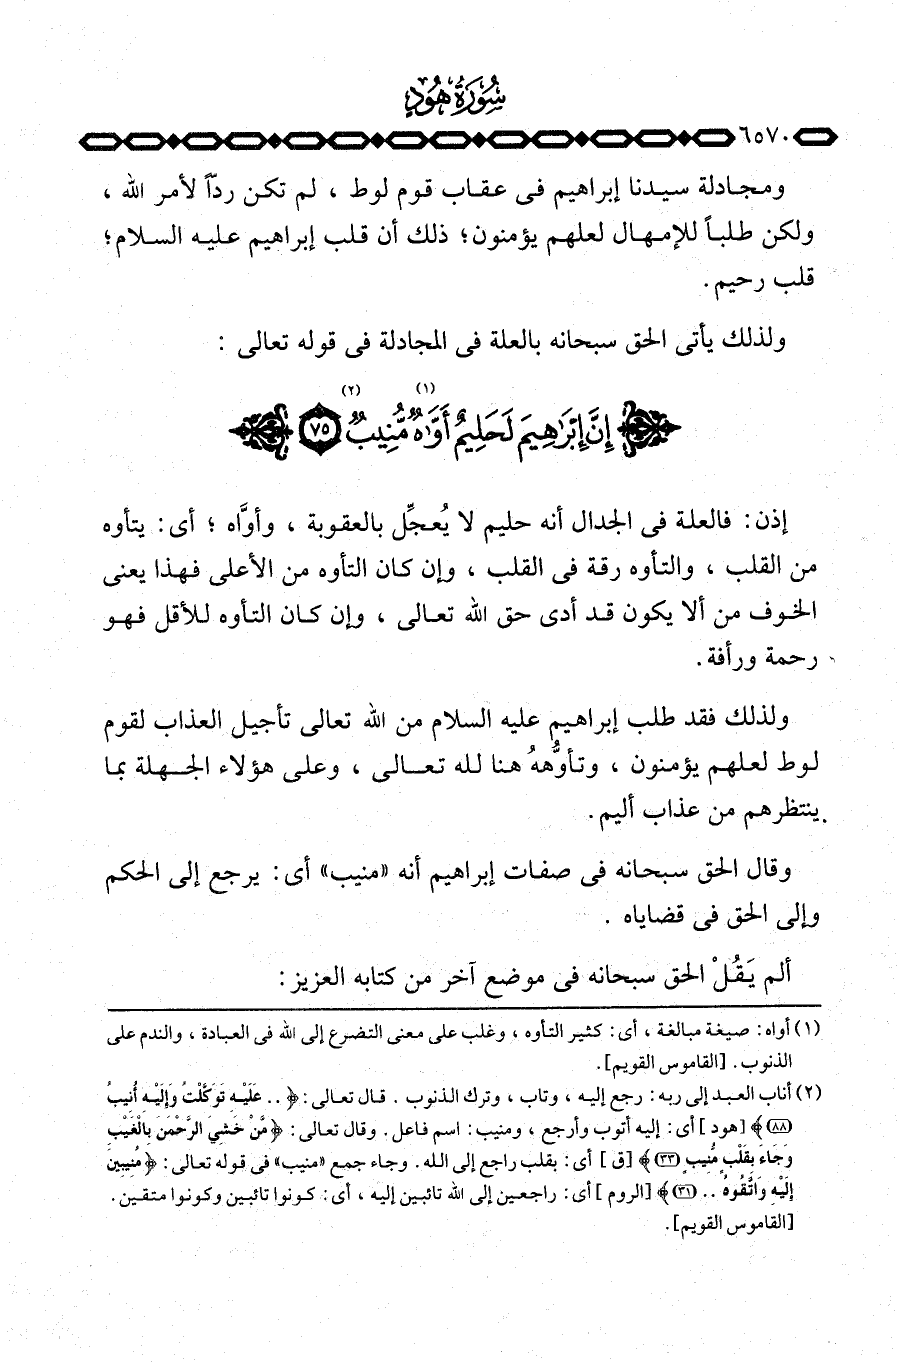 سُورَةُ هُودٍ
٦٥٧٠
ومجادلة سيدنا إبراهيم فى عقاب قوم لوط ، لم تكن رداً لأمر الله ،
ولكن طلباً للإمهال لعلهم يؤمنون؛ ذلك أن قلب إبراهيم عليه السلام؛
قلب رحيم.
ولذلك يأتى الحق سبحانه بالعلة فى المجادلة فى قوله تعالى :
إِنَّ إِبْرَاهِيمَ لَحَلِيمٌ أَوَّاهٌ (١) مُّنِيبٌ (٢) ٧٥
إذن: فالعلة فى الجدال أنه حليم لا يُعجِّل بالعقوبة ، وأوَّاه ؛ أى: يتأوه
من القلب ، والتأوه رقة فى القلب ، وإن كان التأوه من الأعلى فهذا يعنى
الخوف من ألا يكون قد أدى حق الله تعالى ، وإن كان التأوه للأقل فهو
رحمة ورأفة.
ولذلك فقد طلب إبراهيم عليه السلام من الله تعالى تأجيل العذاب لقوم
لوط لعلهم يؤمنون ، وتأوُّههُ هنا لله تعالى ، وعلى هؤلاء الجهلة بما
ينتظرهم من عذاب أليم.
وقال الحق سبحانه فى صفات إبراهيم أنه «منيب» أى: يرجع إلى الحكم
وإلى الحق فى قضاياه .
ألم يَقُلْ الحق سبحانه فى موضع آخر من كتابه العزيز:
(١) أواه: صيغة مبالغة ، أى: كثير التأوه ، وغلب على معنى التضرع إلى الله فى العبادة ، والندم على
الذنوب. [القاموس القويم].
(٢) أناب العبد إلى ربه: رجع إليه ، وتاب ، وترك الذنوب . قال تعالى: ﴿ .. عَلَيْهِ تَوَكَّلْتُ وَإِلَيْهِ أُنِيبُ
(٨٨)﴾ [هود] أى: إليه أتوب وأرجع ، ومنيب: اسم فاعل. وقال تعالى: ﴿مَّنْ خَشِيَ الرَّحْمَنَ بِالْغَيْبِ
وَجَاءَ بِقَلْبٍ مُّنِيبٍ (٣٣)﴾ [ق] أى: بقلب راجع إلى الله. وجاء جمع «منيب» فى قوله تعالى: ﴿مُنِيبِينَ
إِلَيْهِ وَاتَّقُوهُ .. (٣١)﴾ [الروم] أى: راجعين إلى الله تائبين إليه ، أى: كونوا تائبين وكونوا متقين.
[القاموس القويم].